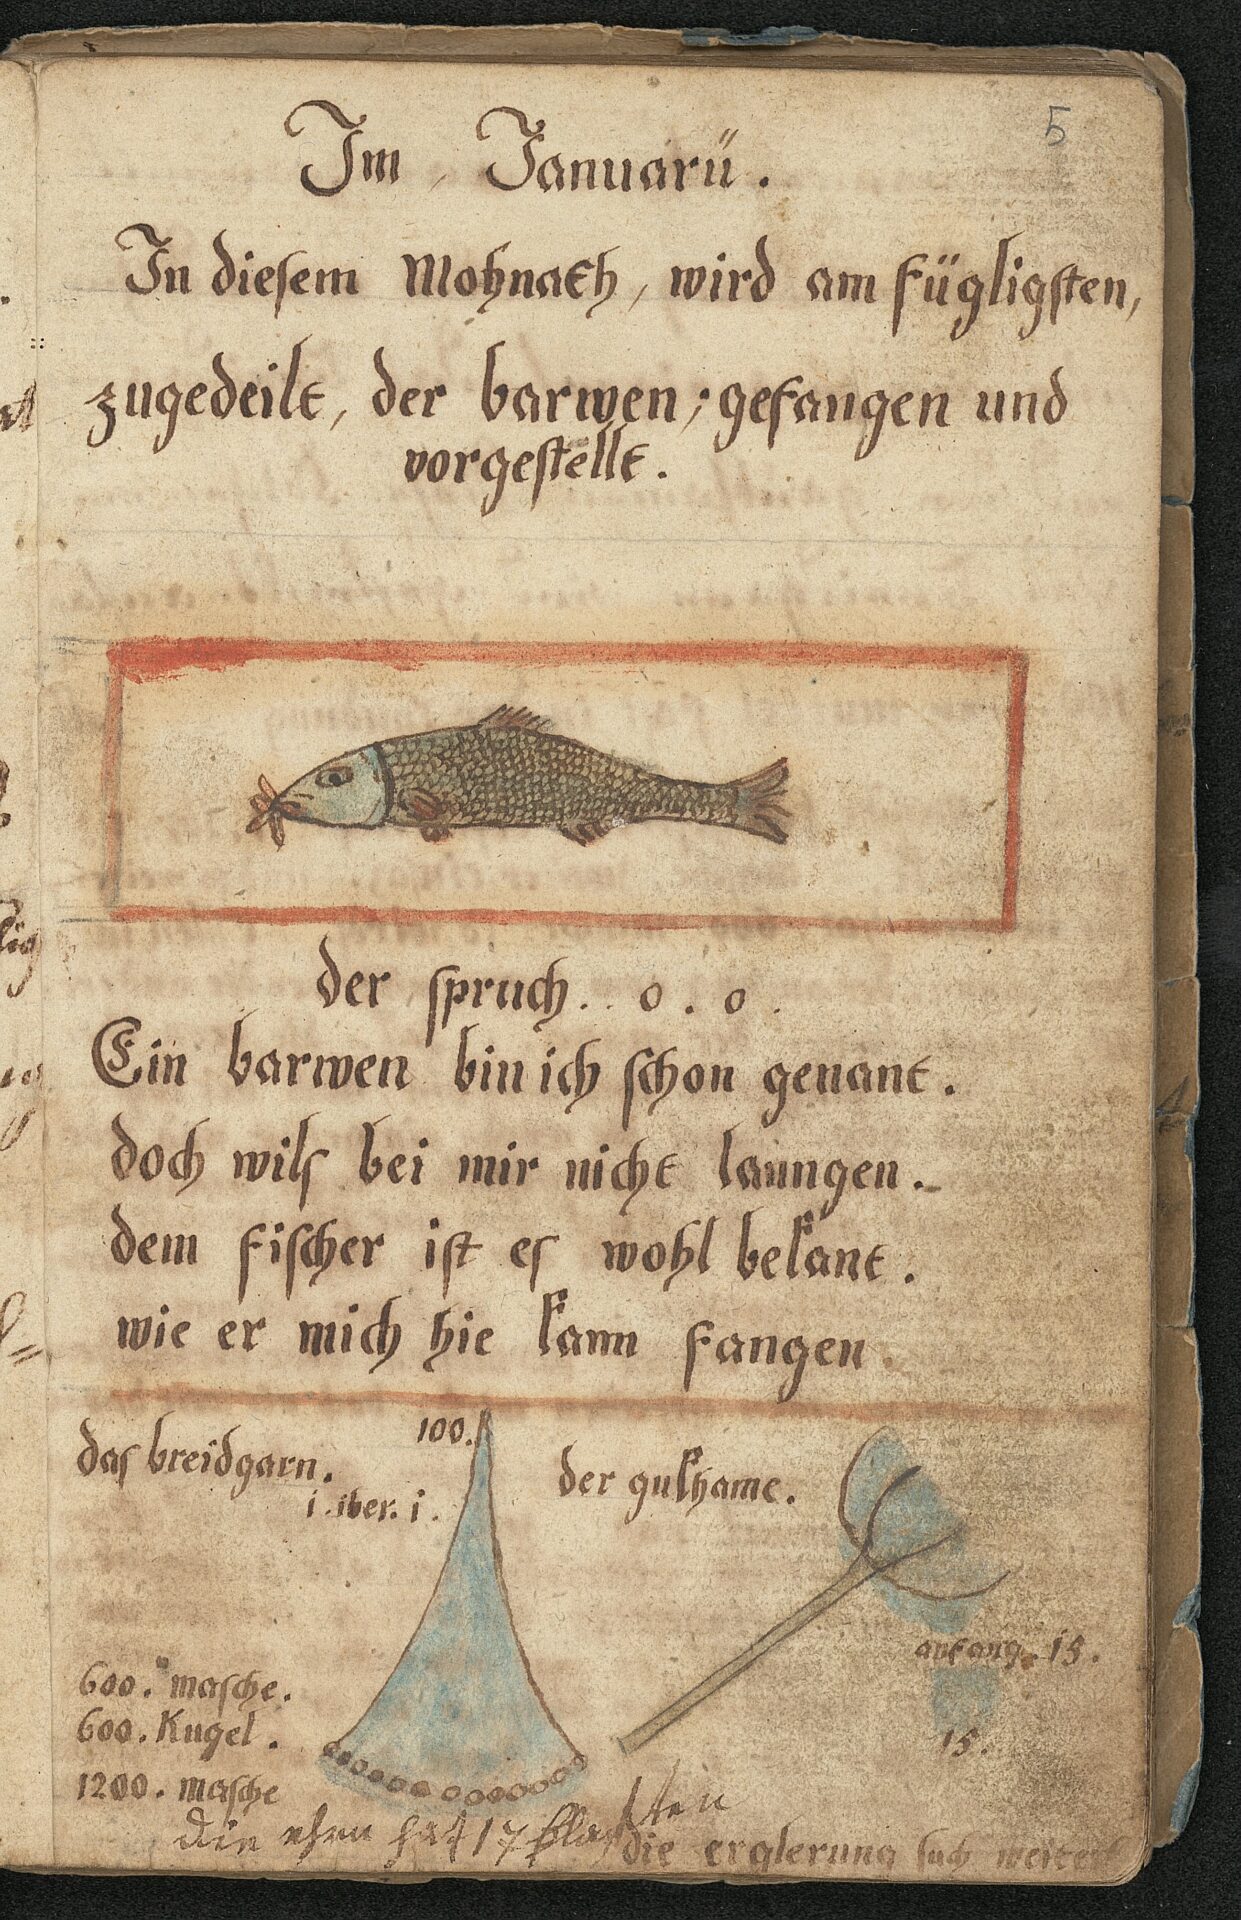 5
Im Januarü.
In diesem Mohnath, wird am fügligsten,
zugedeilt, der barwen; gefangen und
vorgestellt.
der spruch. . o . o .
Ein barwen bin ich schon genant.
doch wils bei mir nicht lanngen.
dem fischer ist es wohl bekant.
wie er mich hie kann fangen.
das breidgarn.
100.
i. iber. i.
der gukhame.
anfang. 15.
15.
600. masche.
600. Kugel.
1200. masche
die hat 17
die erglerung such weiter